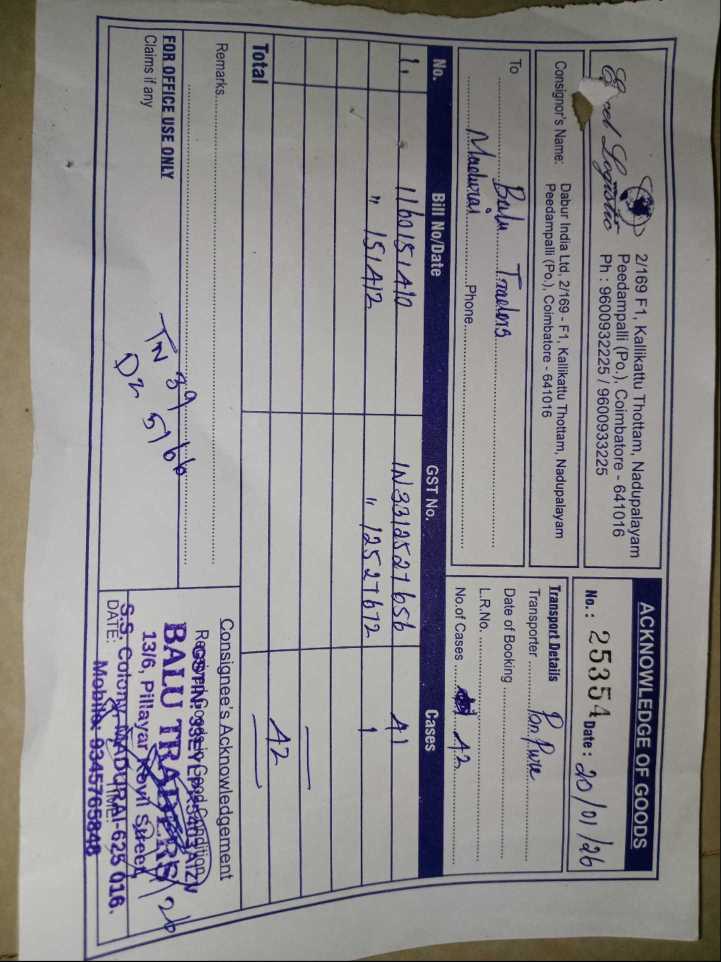 Logistic
2/169 F1, Kallikattu Thottam, Nadupalayam
Peedampalli (Po.), Coimbatore - 641016
Ph : 9600932225 / 9600933225
ACKNOWLEDGE OF GOODS
No. : 25354 Date : 20/01/26
Consignor's Name: Dabur India Ltd, 2/169 - F1, Kallikattu Thottam, Nadupalayam
Peedampalli (Po.), Coimbatore - 641016
To Balu Traders
Madurai Phone
Transport Details
Transporter Pon Pure
Date of Booking
L.R.No.
No.of Cases 42
No. Bill No/Date GST No. Cases
1. 1160151410 IN3312527656 41
" 151412 " 12527672 1
Total 42
Remarks
FOR OFFICE USE ONLY
Claims if any
TN 39
DZ 5166
Consignee's Acknowledgement
Received Goods in Good Condition
BALU TRADERS
13/6, Pillayar Kovil Street,
S.S. Colony, MADURAI-625 016.
DATE: TIME:
Mobile: 9345765848